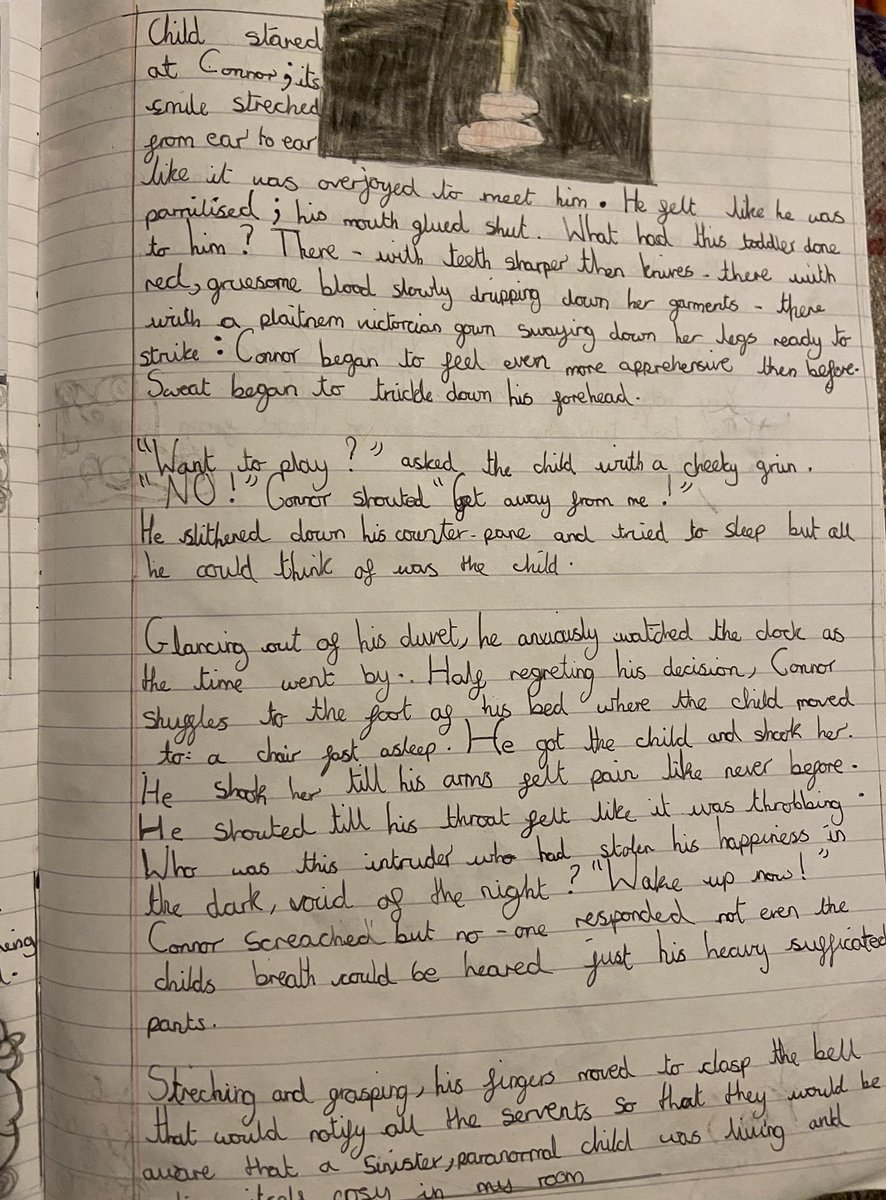 Child stared
at Connor; its
smile streched
from ear to ear
like it was overjoyed to meet him. He felt like he was
parrilised; his mouth glued shut. What had this toddler done
to him? There - with teeth sharper then knives - there with
red, gruesome blood slowly dripping down her garments - there
with a plaitnem victorian gown swaying down her legs ready to
strike: Connor began to feel even more apprehensive then before.
Sweat began to trickle down his forehead.
"Want to play?" asked the child with a cheeky grin.
"NO!" Connor shouted "Get away from me!"
He slithered down his counter-pane and tried to sleep but all
he could think of was the child.
Glancing out of his duvet, he anxiously watched the clock as
the time went by.. Half regreting his decision, Connor
shuggles to the foot of his bed where the child moved
to: a chair fast asleep. He got the child and shook her.
He shook her till his arms felt pain like never before.
He shouted till his throat felt like it was throbbing.
Who was this intruder who had stolen his happiness in
the dark, void of the night? "Wake up now!"
Connor screached but no-one responded not even the
childs breath could be heared just his heavy sufficated
pants.
Streching and grasping, his fingers moved to clasp the bell
that would notify all the servents so that they would be
aware that a sinister, paranormal child was living and
cosy in my room